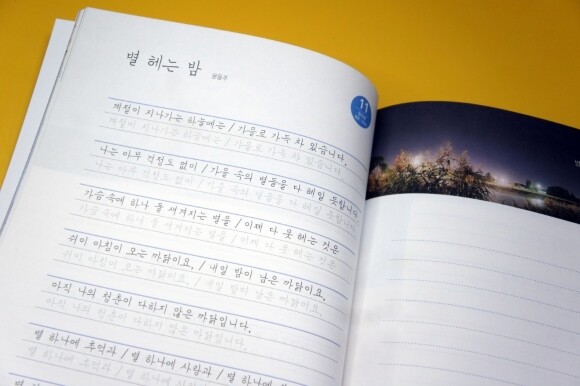 별 헤는 밤
윤동주
11
계절이 지나가는 하늘에는 / 가을로 가득 차 있습니다.
계절이 지나가는 하늘에는 / 가을로 가득 차 있습니다.
나는 아무 걱정도 없이 / 가을 속의 별들을 다 헤일 듯합니다
나는 아무 걱정도 없이 / 가을 속의 별들을 다 헤일 듯합니다
가슴속에 하나 둘 새겨지는 별을 / 이제 다 못 헤는 것은
가슴속에 하나 둘 새겨지는 별을 / 이제 다 못 헤는 것은
쉬이 아침이 오는 까닭이요, / 내일 밤이 남은 까닭이요,
쉬이 아침이 오는 까닭이요, / 내일 밤이 남은 까닭이요,
아직 나의 청춘이 다하지 않은 까닭입니다.
아직 나의 청춘이 다하지 않은 까닭입니다.
별 하나에 추억과 / 별 하나에 사랑과 /
별 하나에 추억과 / 별 하나에 사랑과 /